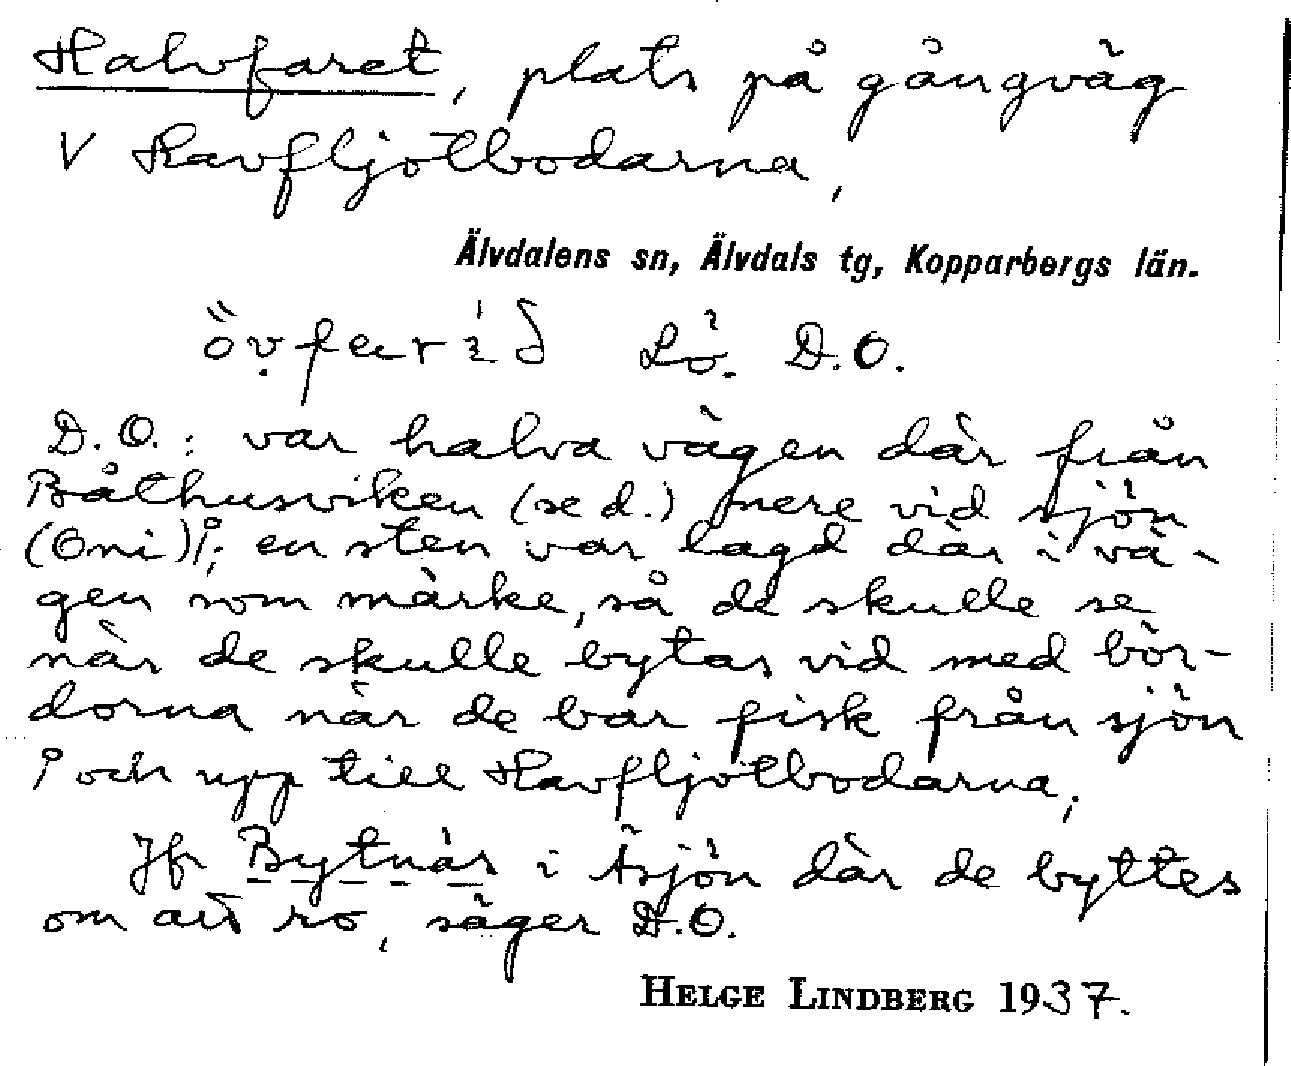 Halvfaret, plats på gångväg
V Havfljotbodarna,
Älvdalens sn, Älvdals tg, Kopparbergs län.
D.O.
D.O.: var halva vägen där från
Båthusviken (se d.) nere vid sjön
en sten var lagd där i vä-
gen som märke, så de skulle se
när de skulle bytas vid med bör-
dorna när de bar fisk från sjön
och upp till Havfljotbodarna;
Jfr Bytnäs i Åsjön där de byttes
om att ro, säger D.O.
HELGE LINDBERG 1937.